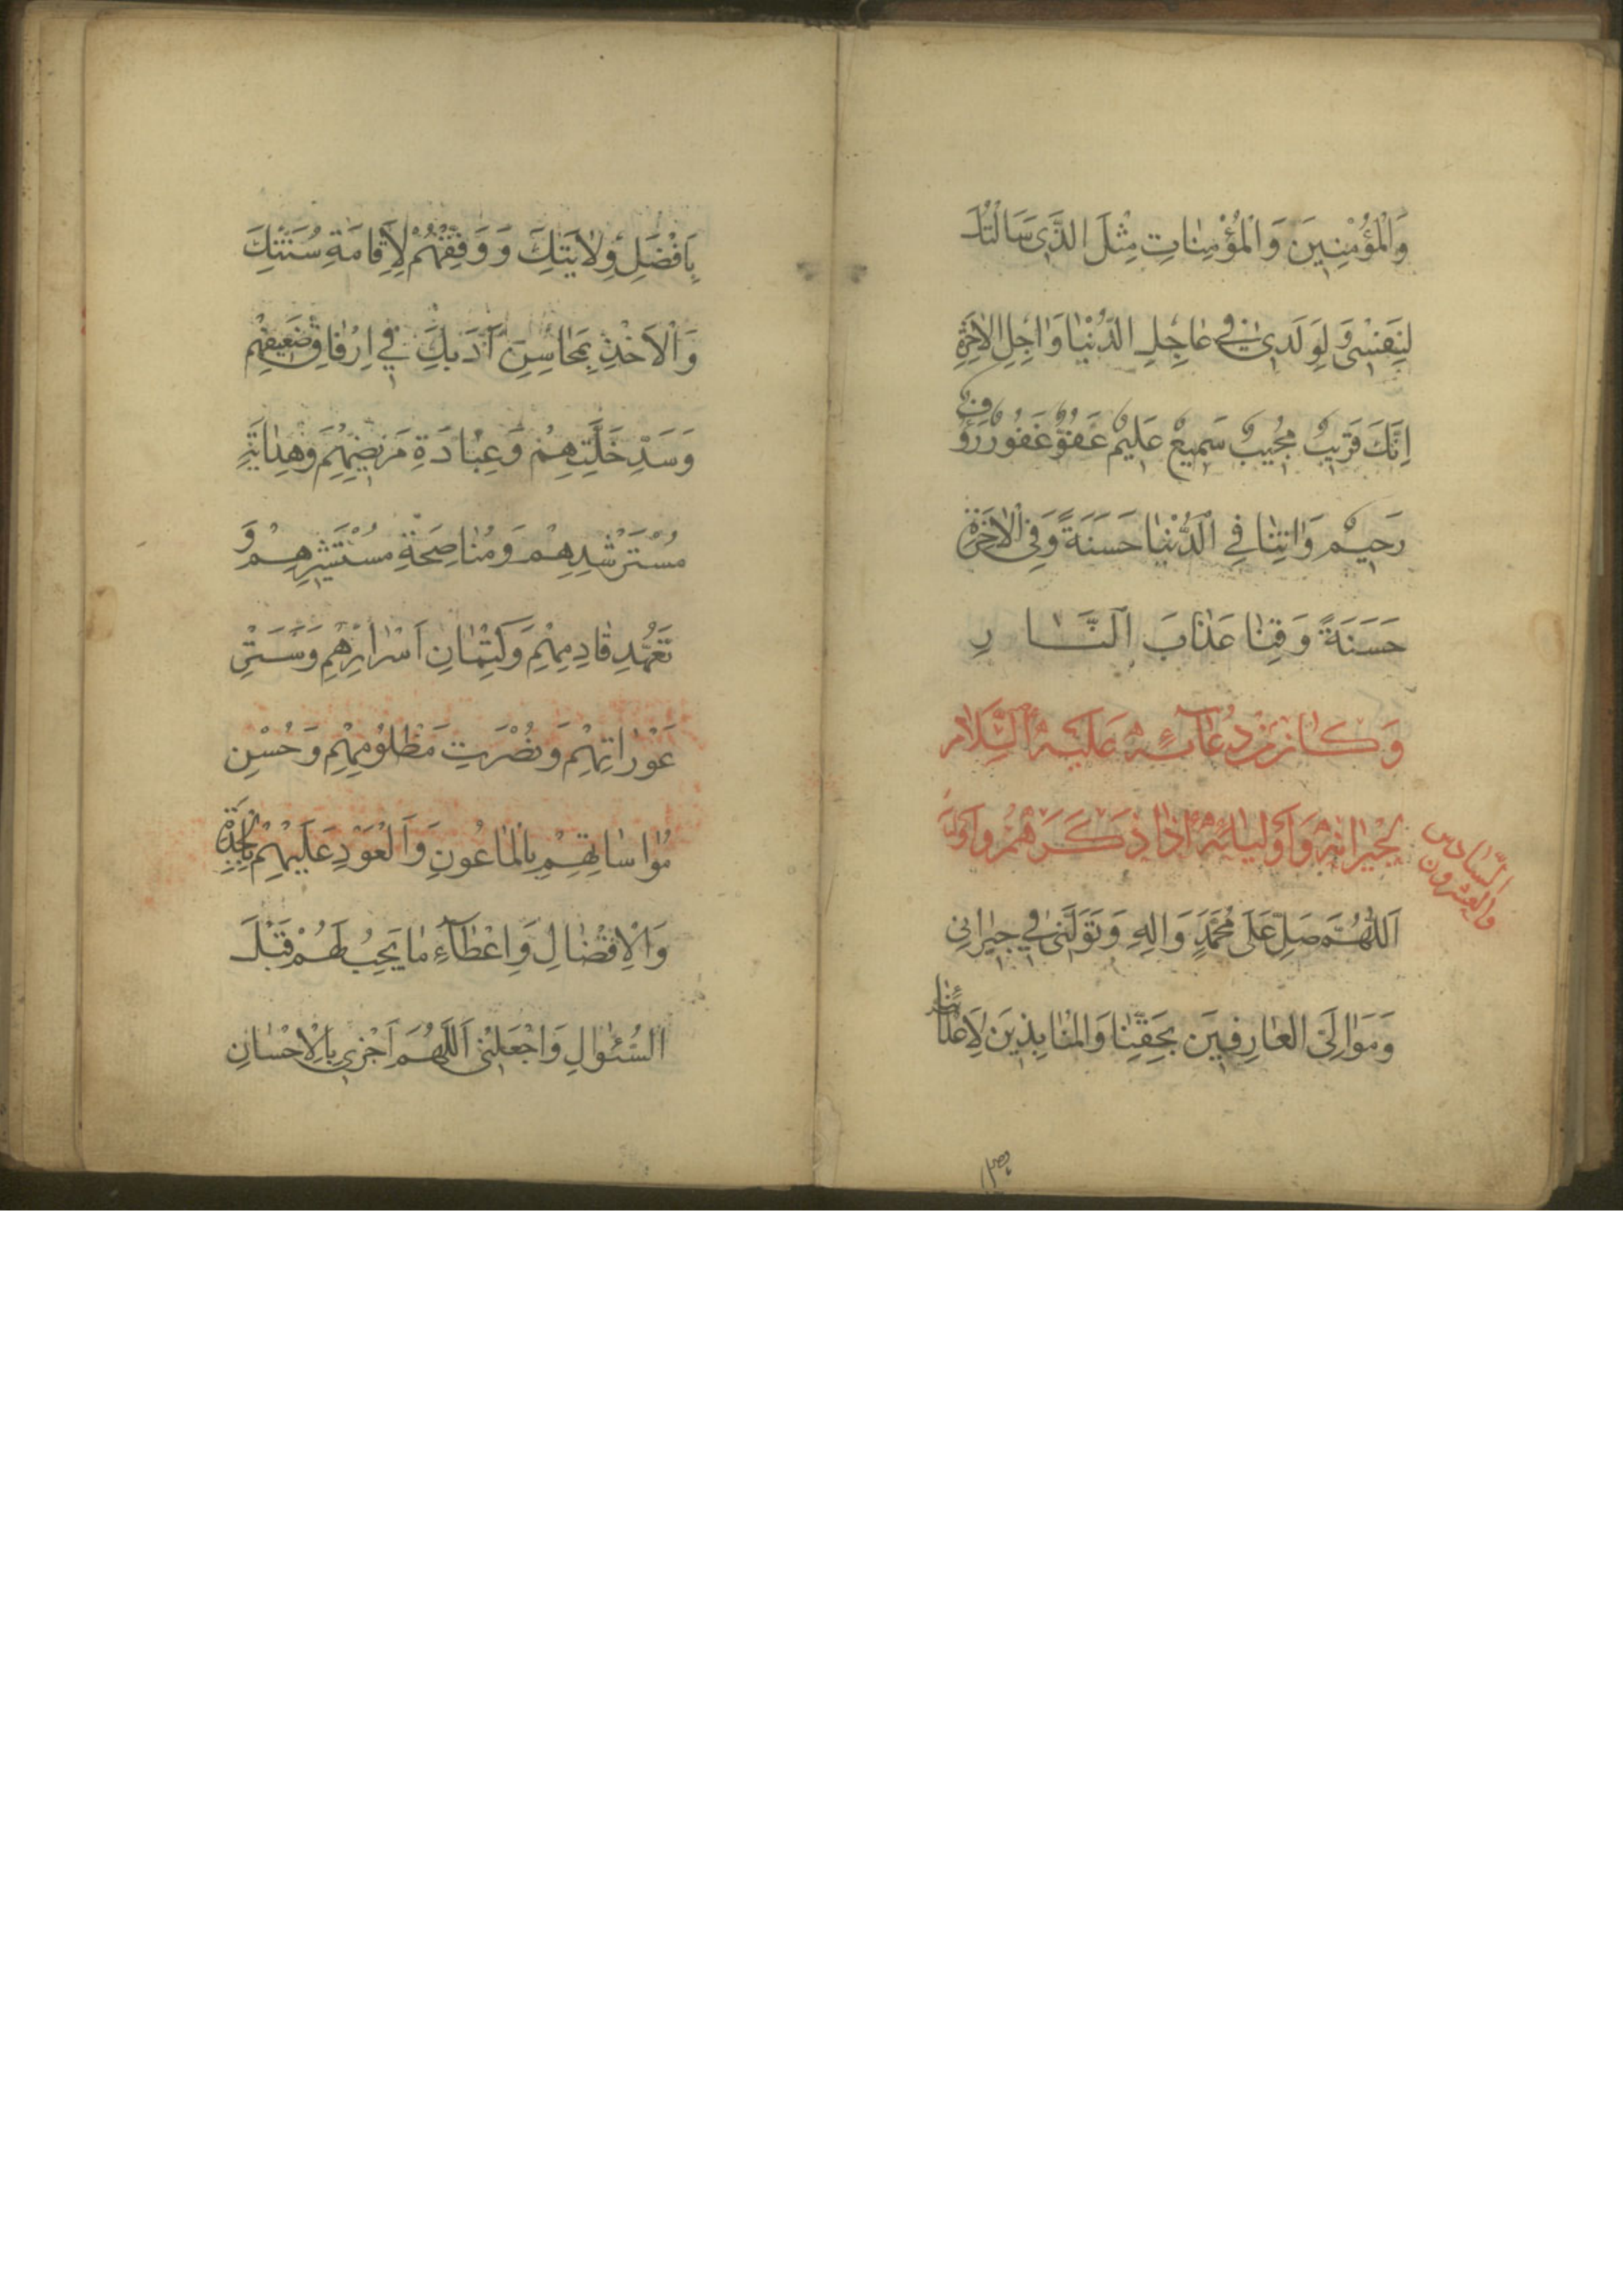 وَالْمُؤْمِنِينَ وَالْمُؤْمِنَاتِ مِثْلَ الَّذِي سَأَلْتُكَ
لِنَفْسِي وَلِوَلَدِي فِي عَاجِلِ الدُّنْيَا وَاٰجِلِ الْاٰخِرَةِ
اِنَّكَ قَرِيبٌ مُجِيبٌ سَمِيعٌ عَلِيمٌ عَفُوٌّ غَفُورٌ رَؤُفٌ
رَحِيمٌ وَاٰتِنَا فِي الدُّنْيَا حَسَنَةً وَفِي الْاٰخِرَةِ
حَسَنَةً وَقِنَا عَذَابَ النَّارِ
وَكَانَ مِنْ دُعَائِهِ عَلَيْهِ السَّلَامُ
لِجِيرَانِهِ وَاَوْلِيَائِهِ اِذَا ذَكَرَهُمْ
السَّادِس
وَالعِشْرُون
اَللّٰهُمَّ صَلِّ عَلَى مُحَمَّدٍ وَاٰلِهِ وَتَوَلَّنِي فِي جِيرَانِي
وَمَوَالِيَّ الْعَارِفِينَ بِحَقِّنَا وَالْمُنَابِذِينَ لِاَعْدَائِنَا
بِاَفْضَلِ وِلَايَتِكَ وَوَفِّقْهُمْ لِاِقَامَةِ سُنَّتِكَ
وَالْاَخْذِ بِمَحَاسِنِ اَدَبِكَ فِي اِرْفَاقِ ضَعِيفِهِمْ
وَسَدِّ خَلَّتِهِمْ وَعِيَادَةِ مَرِيضِهِمْ وَهِدَايَةِ
مُسْتَرْشِدِهِمْ وَمُنَاصَحَةِ مُسْتَشِيرِهِمْ وَ
تَعَهُّدِ قَادِمِهِمْ وَكِتْمَانِ اَسْرَارِهِمْ وَسَتْرِ
عَوْرَاتِهِمْ وَنُصْرَتِ مَظْلُومِهِمْ وَحُسْنِ
مُوَاسَاتِهِمْ بِالْمَاعُونِ وَالْعَوْدِ عَلَيْهِمْ بِالْجِدَةِ
وَالْاِفْضَالِ وَاِعْطَاءِ مَا يَجِبُ لَهُمْ قَبْلَ
السُّئَوالِ وَاجْعَلْنِي اَللّٰهُمَّ اَجْزِي بِالْاِحْسَانِ